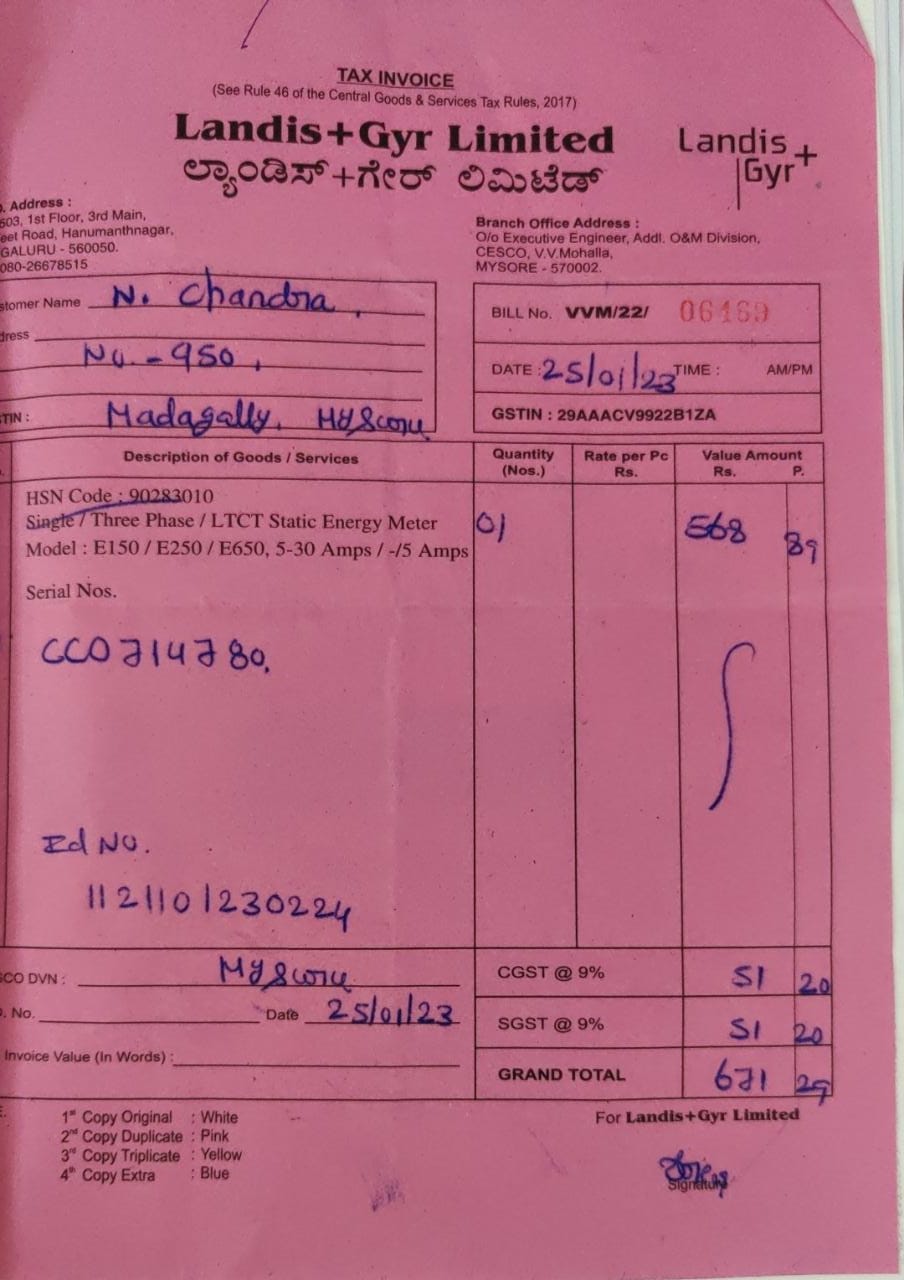 TAX INVOICE
(See Rule 46 of the Central Goods & Services Tax Rules, 2017)
Landis+Gyr Limited
ಲ್ಯಾಂಡಿಸ್+ಗೇರ್ ಲಿಮಿಟೆಡ್
Landis+
Gyr
. Address :
503, 1st Floor, 3rd Main,
eet Road, Hanumanthnagar,
GALURU - 560050.
080-26678515
Branch Office Address :
O/o Executive Engineer, Addl. O&M Division,
CESCO, V.V.Mohalla,
MYSORE - 570002.
stomer Name N. Chandra,
dress
No. - 950,
TIN : Madagally, Mysore
BILL No. VVM/22/ 06469
DATE : 25/01/23 TIME : AM/PM
GSTIN : 29AAACV9922B1ZA
Description of Goods / Services Quantity (Nos.) Rate per Pc Rs. Value Amount Rs. P.
HSN Code : 90283010
Single / Three Phase / LTCT Static Energy Meter 01 568 89
Model : E150 / E250 / E650, 5-30 Amps / -/5 Amps
Serial Nos.
CC0714780.
Ed No.
1121101230224
SCO DVN : Mysore CGST @ 9% 51 20
. No. Date 25/01/23 SGST @ 9% 51 20
Invoice Value (In Words) : GRAND TOTAL 671 29
1st Copy Original : White
2nd Copy Duplicate : Pink
3rd Copy Triplicate : Yellow
4th Copy Extra : Blue
For Landis+Gyr Limited
Signature